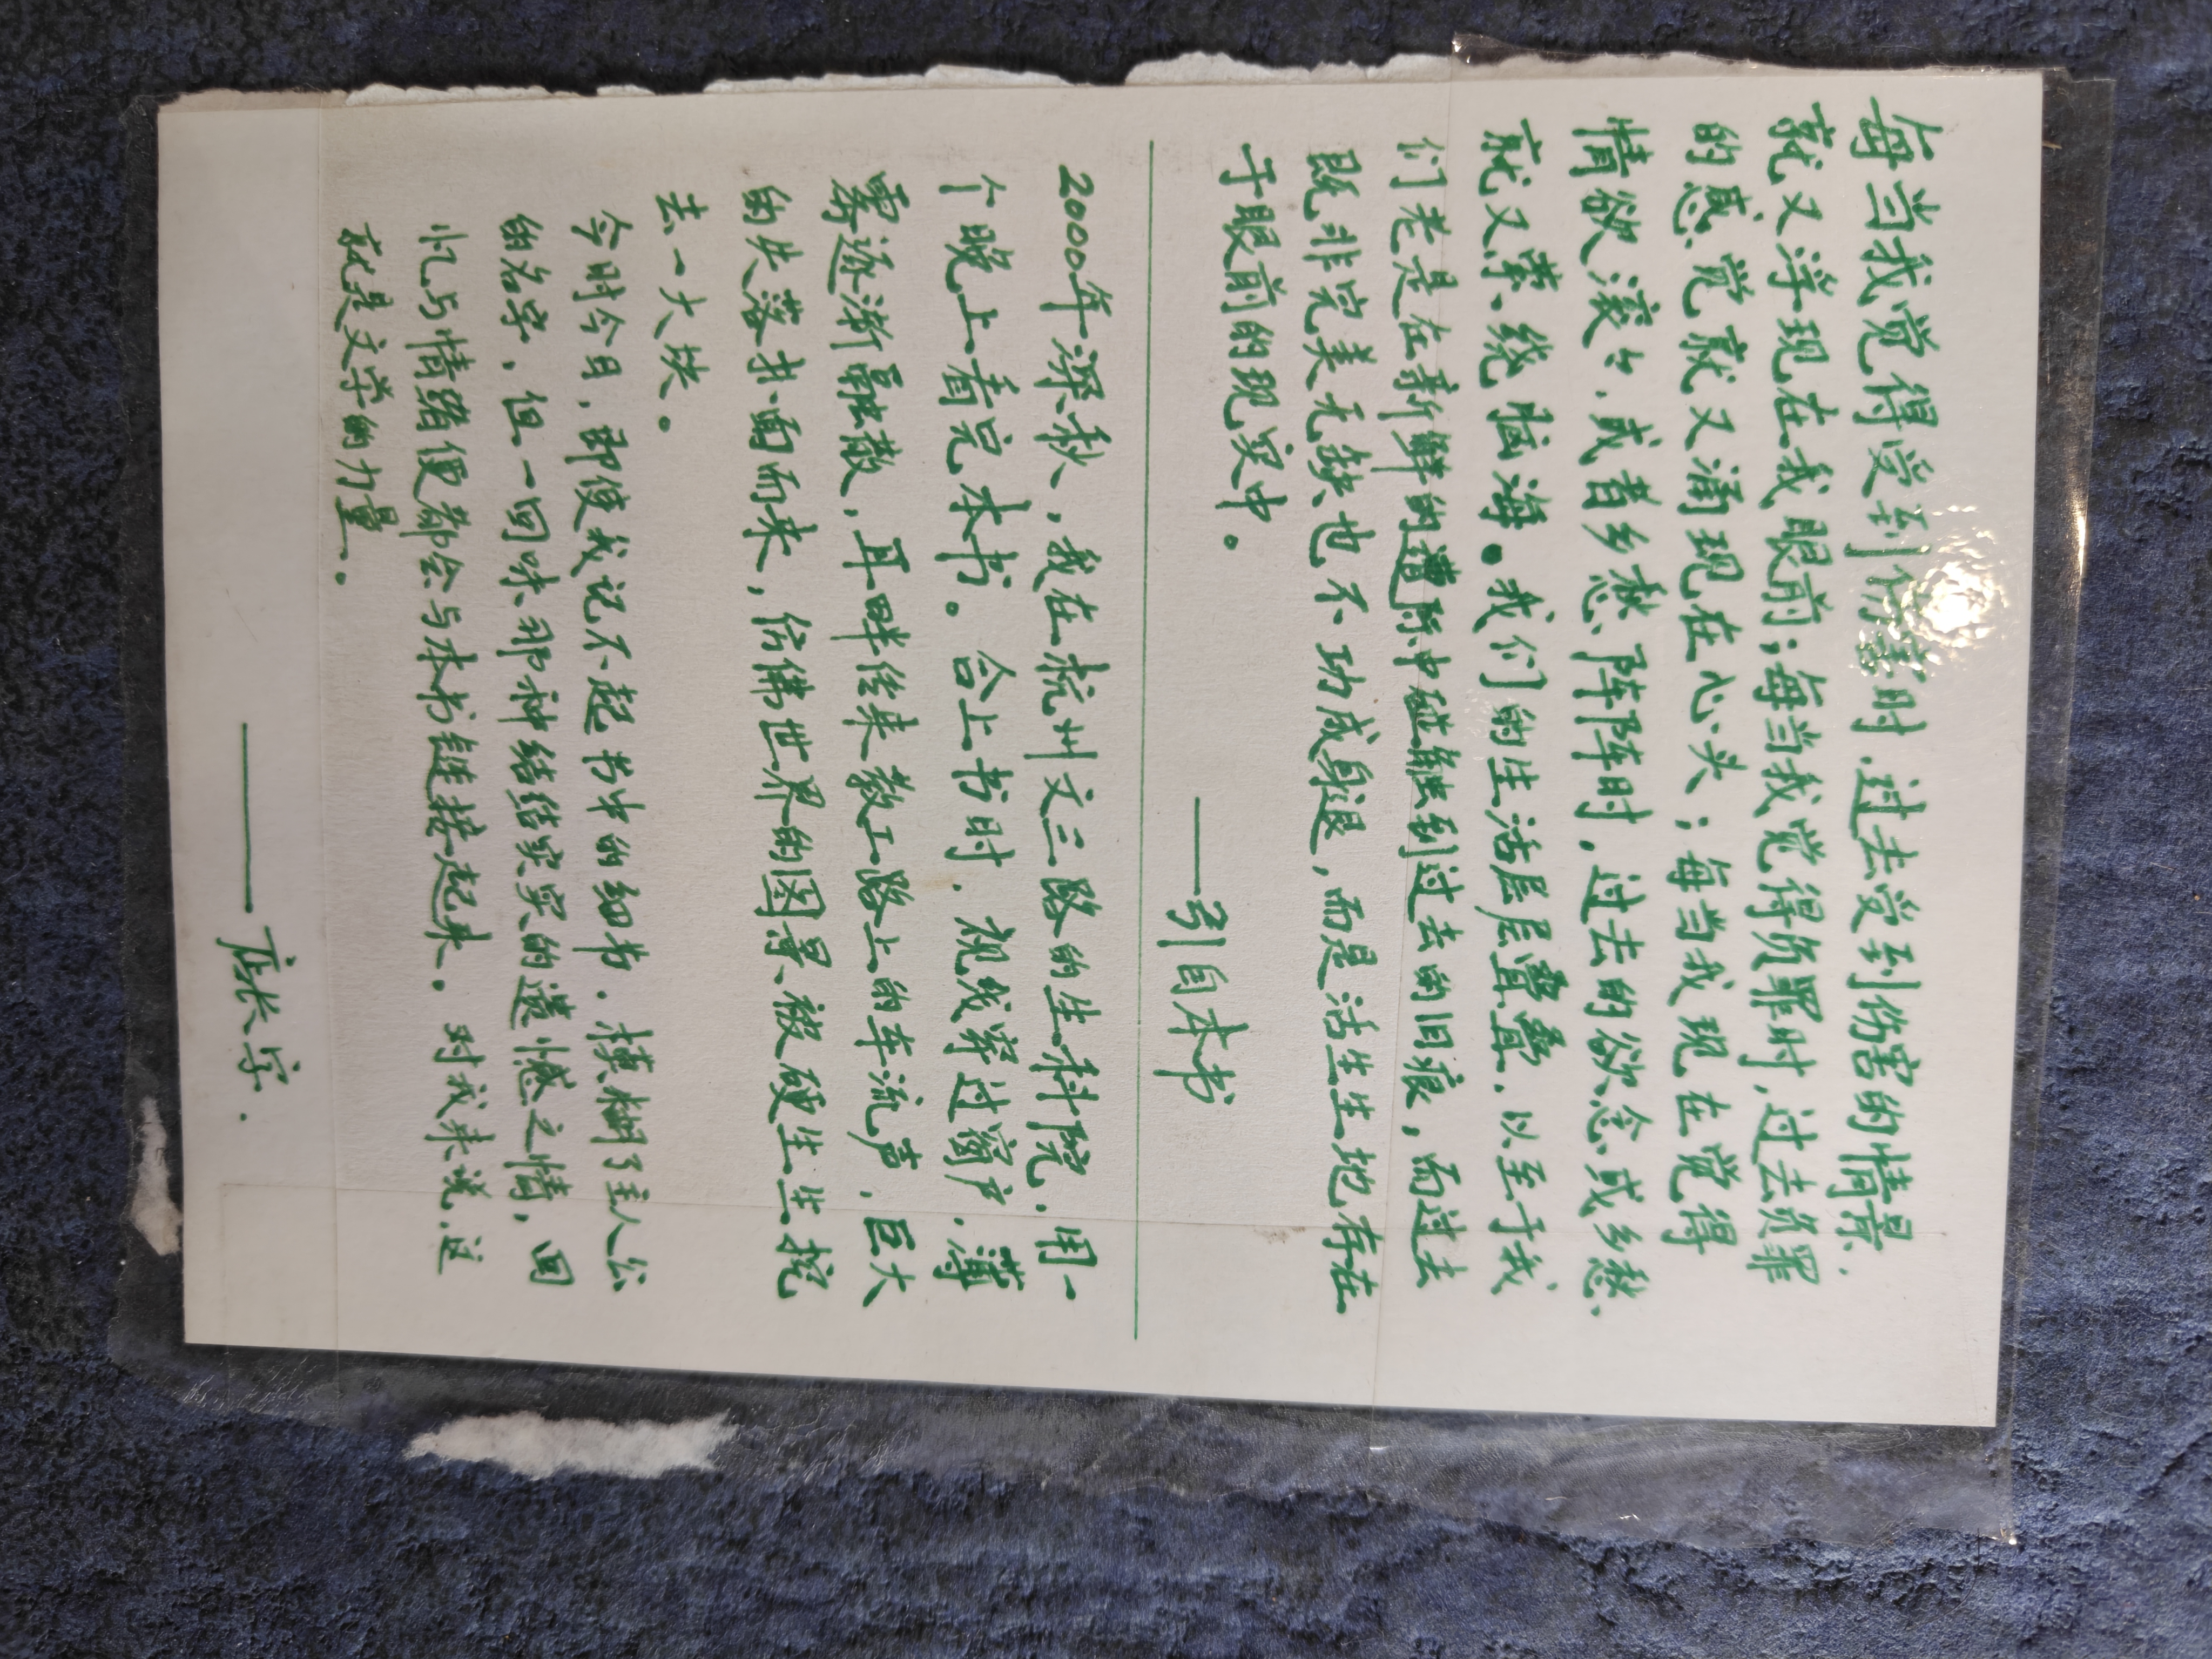 每当我觉得受到伤害时，过去受到伤害的情景
就又浮现在我眼前；每当我觉得负罪时，过去负罪
的感觉就又涌现在心头；每当我现在觉得
情欲滚々，或者乡愁阵阵时，过去的欲念或乡愁
就又萦绕脑海。我们的生活层层叠叠，以至于我
们老是在新鲜的遭际中碰触到过去的旧痕，而过去
既非完美无缺也不功成身退，而是活生生地存在
于眼前的现实中。
——引自本书
2000年深秋，我在杭州文三路的生科院，用一
个晚上看完本书。合上书时，视线穿过窗户，薄
雾逐渐融散，耳畔传来教工路上的车流声，巨大
的失落扑面而来，仿佛世界的图景被硬生生挖
去一大块。
今时今日，即使我记不起书中的细节，模糊了主人公
的名字，但一回味那种结结实实的遗憾之情，回
忆与情绪便都会与本书链接起来。对我来说，这
就是文学的力量。
——店长字.